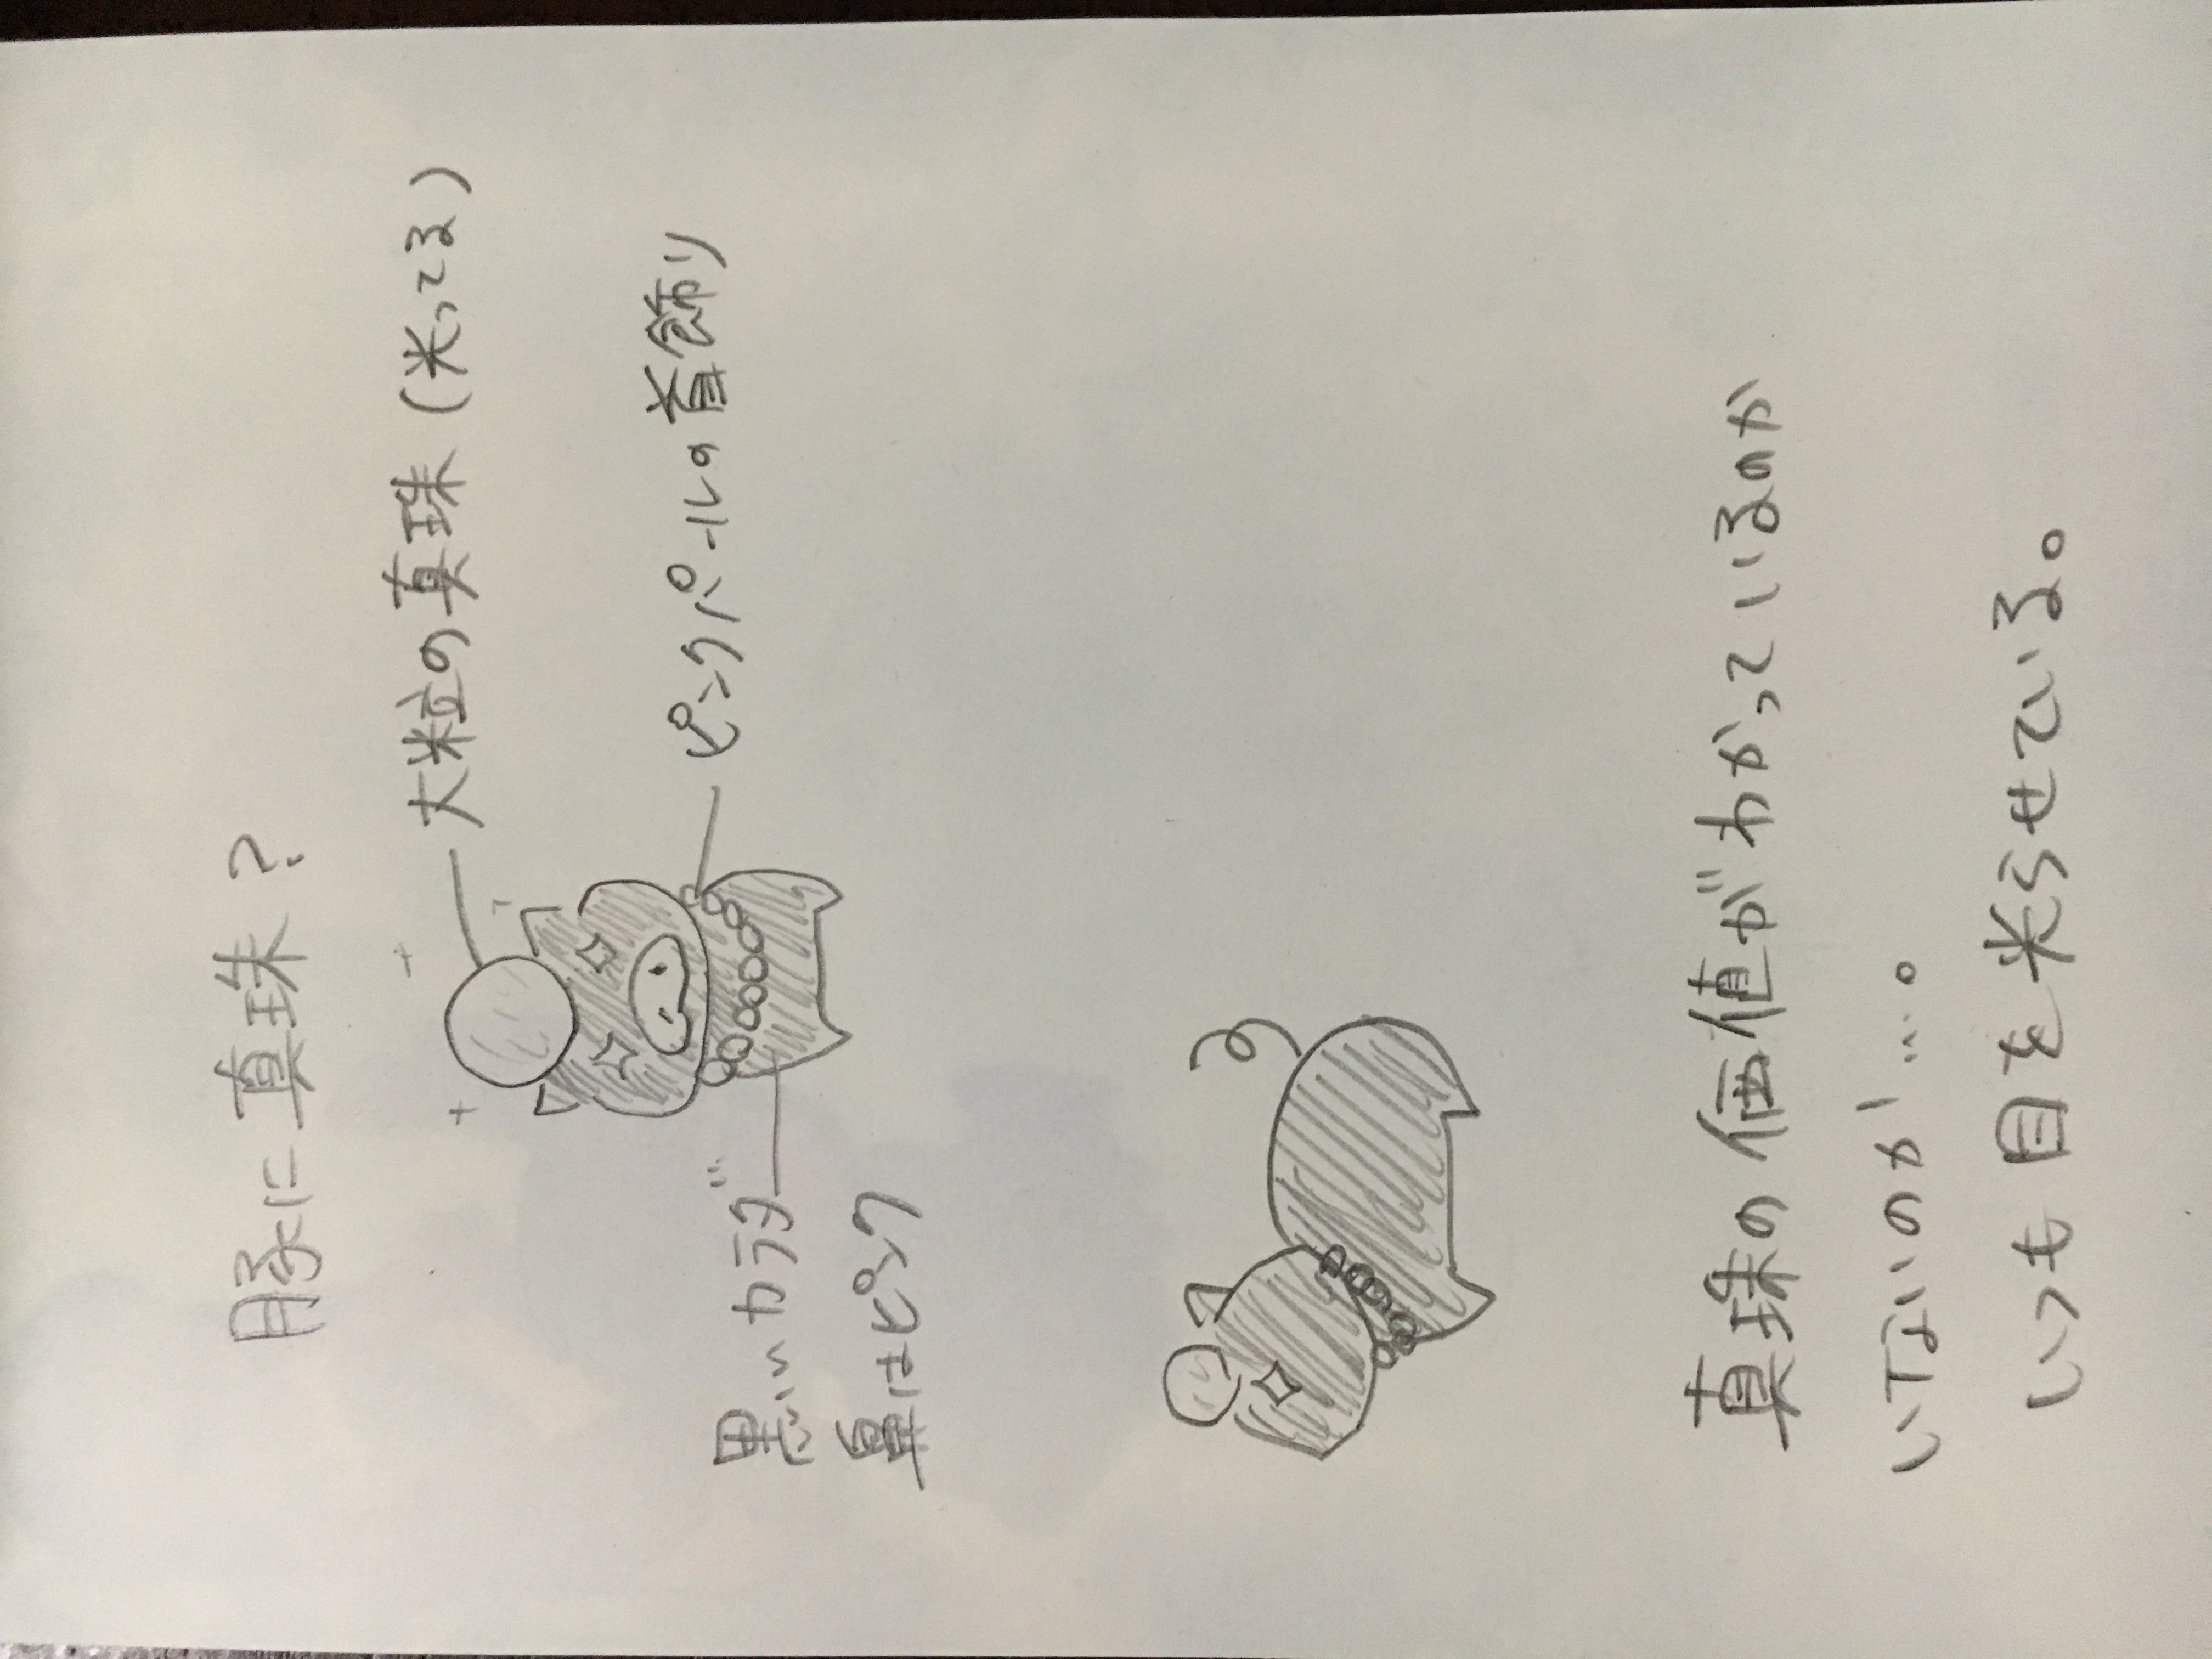 豚に真珠?
大粒の真珠(光ってる)
ピンクパールの首飾り
黒いカラダ
鼻はピンク
真珠の価値がわかっているのか
いないのか…。
いつも目を光らせている。